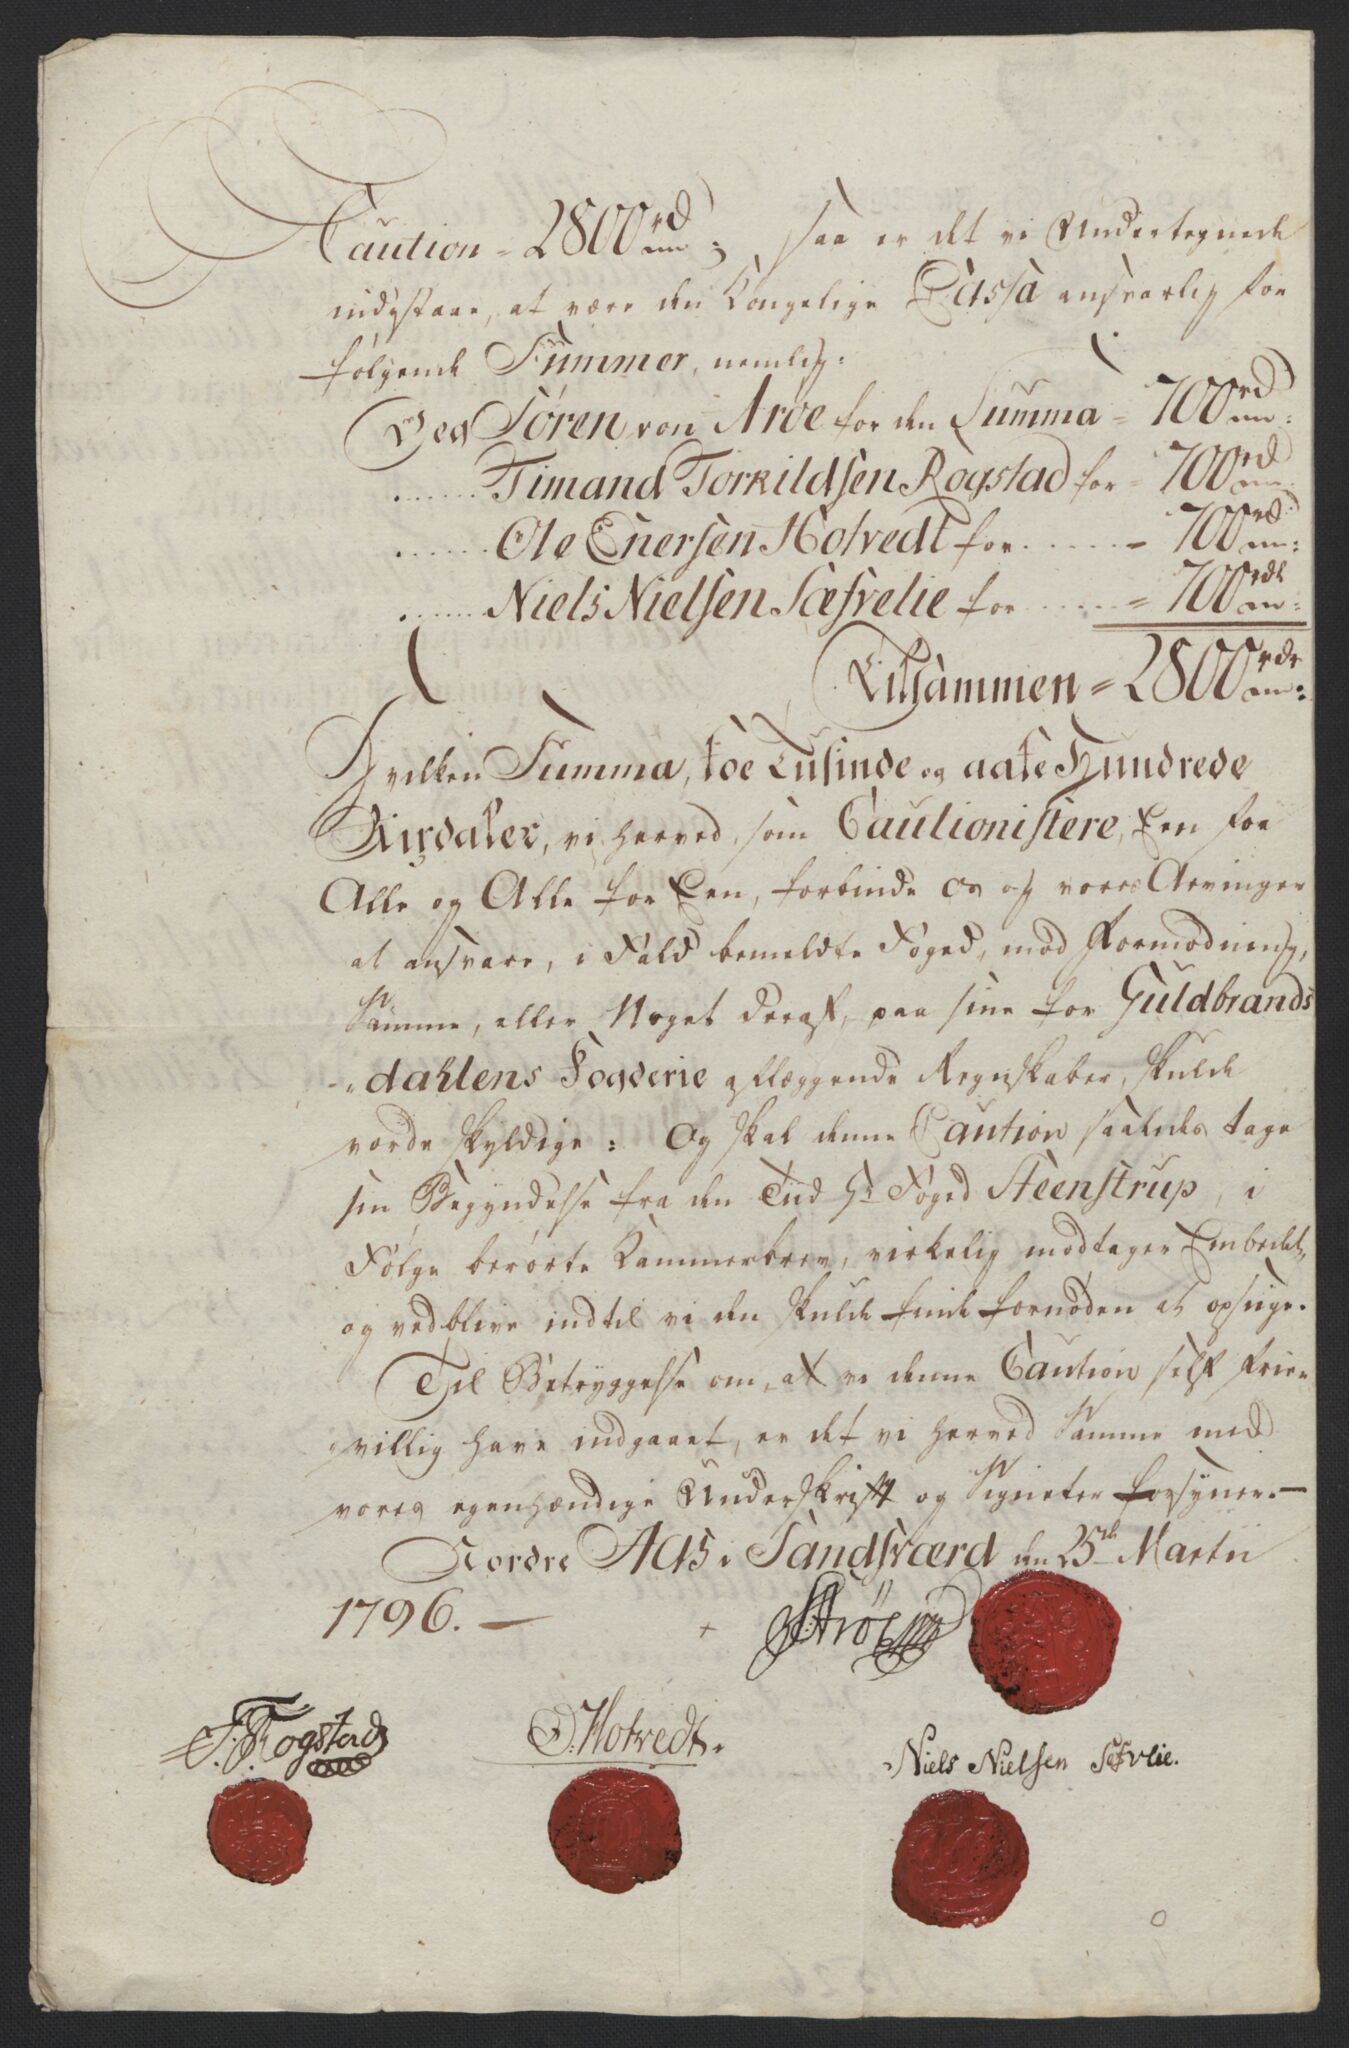 Caution = 2800 rd; saa er det vi Undertegnede
indgaae, at være den Kongelige Cassa ansvarlig for
følgende Summer, nemlig:
Jeg Søren von Aroe for den Summa = 700 rd:
....... Timand Torkildsen Rogstad for = 700 rd
....... Ole Enersen Hotvedt for ....... = 700 rd:
....... Niels Nielsen Sæfvelie for ....... = 700 rdl:
Tilsammen = 2800 rdr:
Hvilken Summa, toe Tusinde og aate Hundrede
Rixdaler, vi herved, som Cautionistere, Een for
Alle og Alle for Een, forbinde os og vores Arvinger
at ansvare, i Fald bemeldte Foged, mod Formodning,
Samme, eller Noget deraf, paa sine for Guldbrands
dahlens Fogderie aflæggende Regnskaber, skulde
vorde skyldige: Og skal denne Caution saaledes tage
sin Begyndelse fra den Tiid Hr Foged Steenstrup, i
Følge berørte Kammerbrev, virkelig modtager Embedet,
og vedblive indtil vi den skulde finde fornøden at opsiige.
Til Betryggelse om, at vi denne Caution self frie
villig have indgaaet, er det vi herved Samme med
vores egenhændige Underskrift og Signeter forsyner. —
Nordre Aas i Sandsværd den 25de Martii
1796. —
T. Rogstad
O: Hotvedt.
Niels Nielsen Sæfvlie.